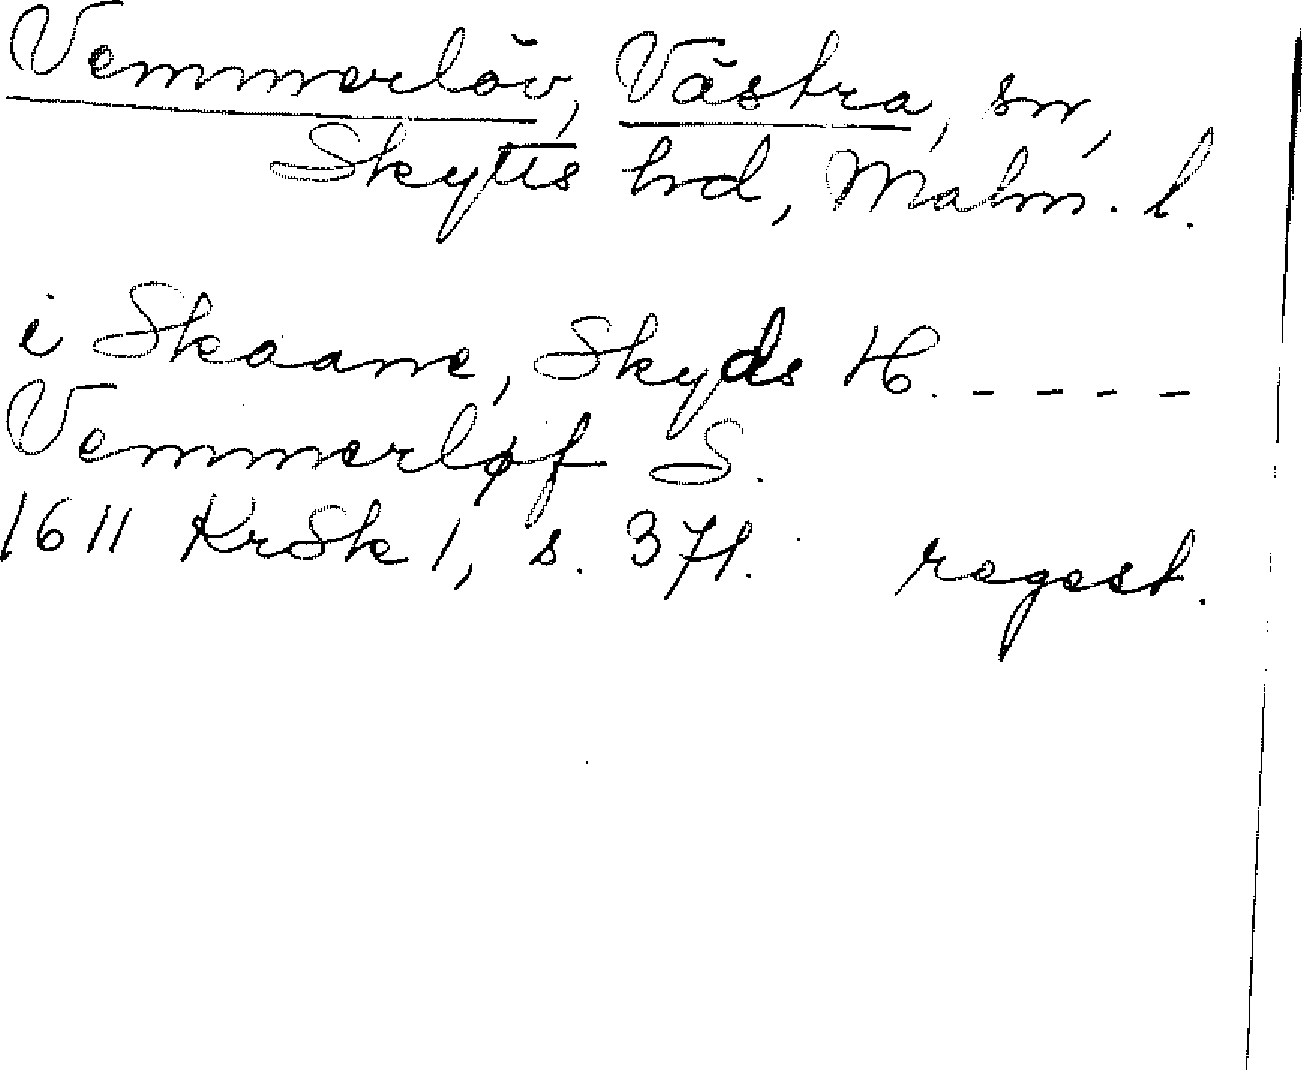 Vemmerlöv, Västra, sn,
Skytts hrd, Malm. l.
i Skaane, Skyds H. - - - -
Vemmerløf S.
1611 KrSk 1, s. 371. regest.